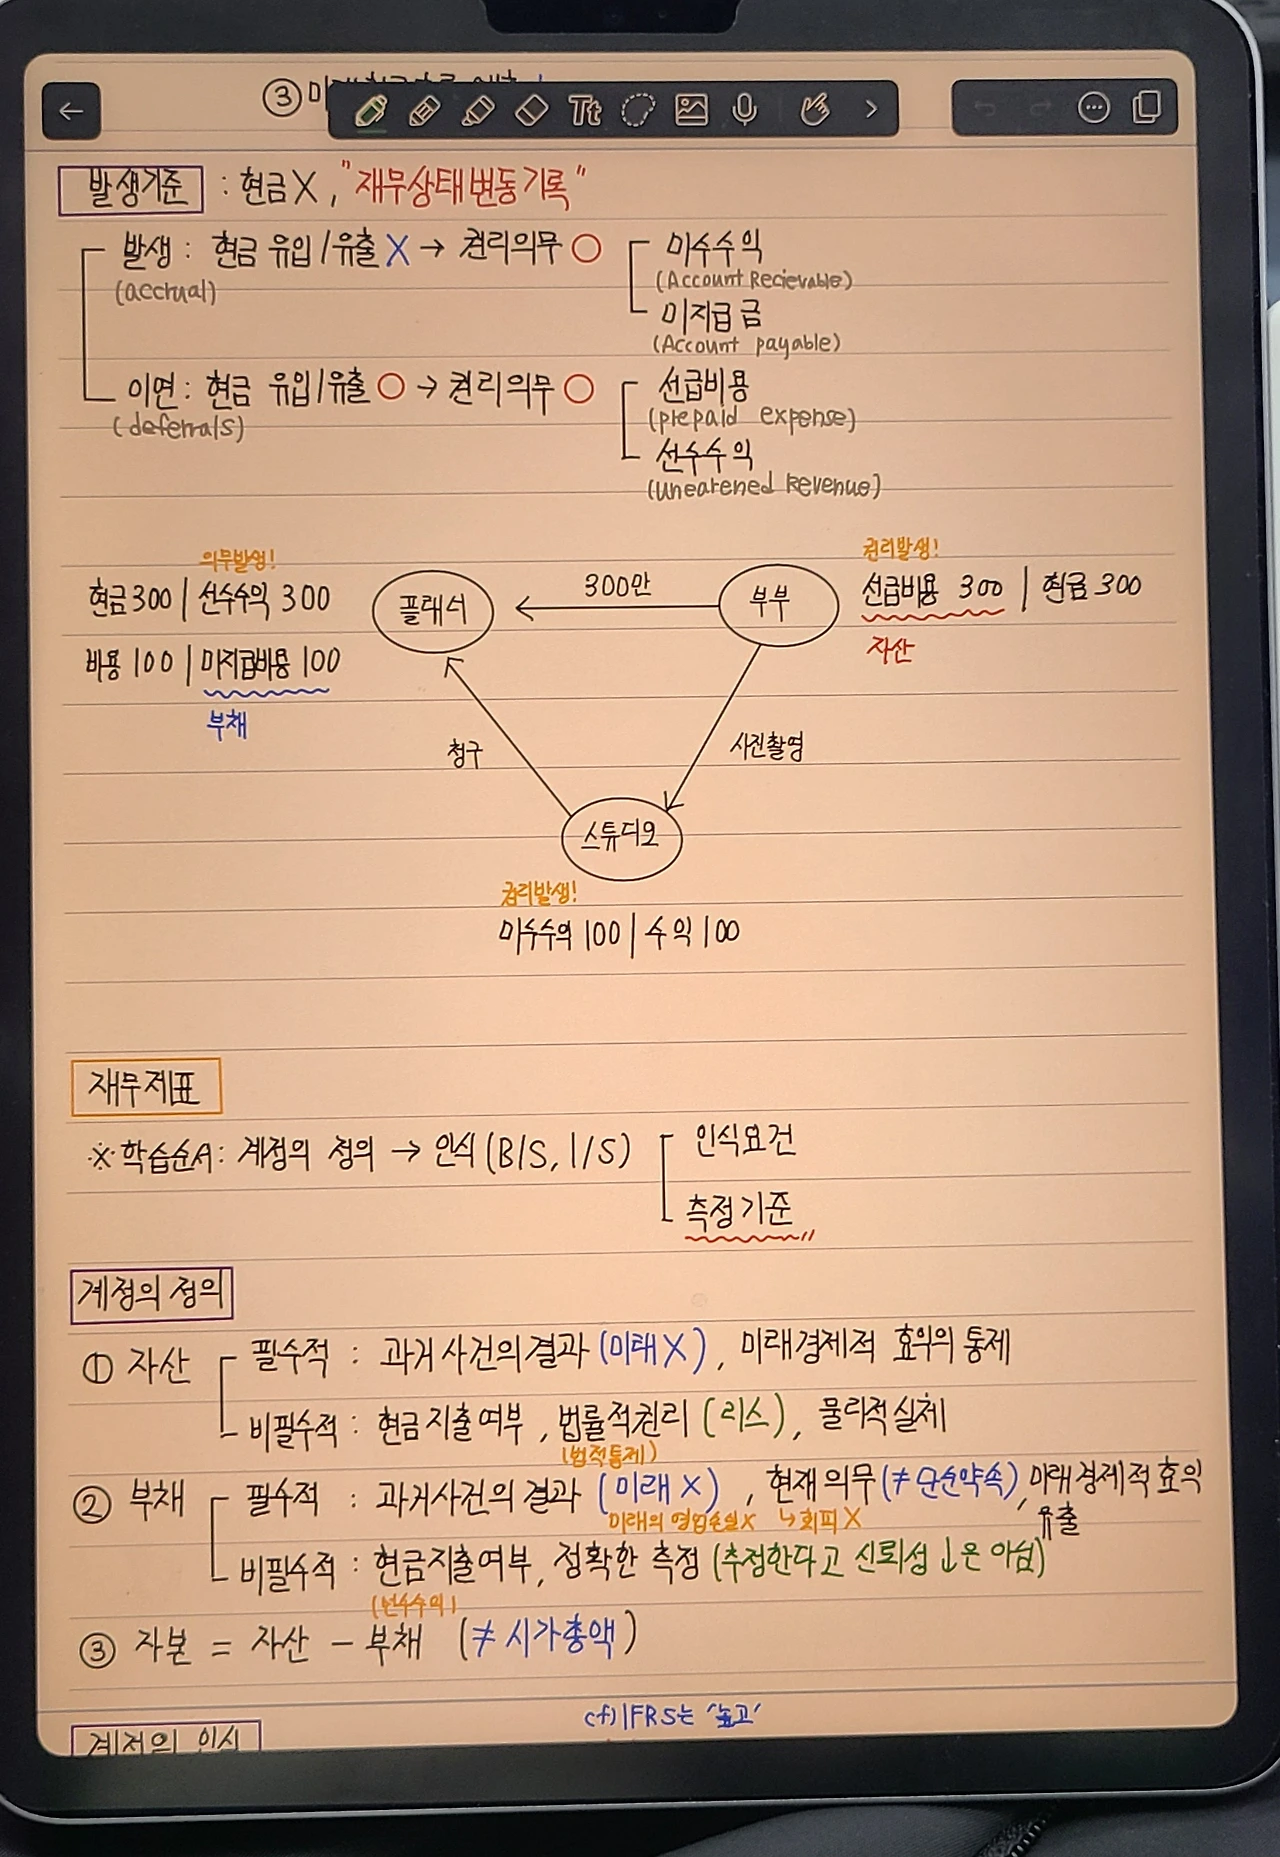 ③
Tt
발생기준 : 현금X, "재무상태변동기록"
발생 : 현금 유입/유출 X → 권리의무 ○ 미수수익
(accrual) (Account Recievable)
미지급금
(Account payable)
이연 : 현금 유입/유출 ○ → 권리의무 ○ 선급비용
(deferrals) (prepaid expense)
선수수익
(unearened Revenue)
의무발생! 권리발생!
현금300 | 선수수익 300 플래너 300만 부부 선급비용 300 | 현금300
비용 100 | 미지급비용 100 자산
부채
청구 사진촬영
스튜디오
권리발생!
미수수익 100 | 수익 100
재무제표
※학습순서 : 계정의 정의 → 인식 (B/S, I/S) 인식요건
측정기준
계정의 정의
① 자산 필수적 : 과거사건의결과 (미래X), 미래경제적 효익의 통제
비필수적 : 현금지출여부, 법률적권리 (리스), 물리적실체
(법적통제)
② 부채 필수적 : 과거사건의 결과 (미래X), 현재의무(≠단순약속), 미래경제적효익
미래의 영업손실X ↳회피X 유출
비필수적 : 현금지출여부, 정확한 측정 (추정한다고 신뢰성↓은 아님)
(선수수익)
③ 자본 = 자산 - 부채 (≠시가총액)
cf) IFRS는 '높고'
계정의 인식